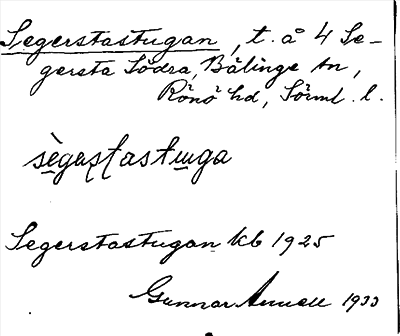 Segerstastugan, t. å 4 Se-
gersta Södra, Bälinge sn,
Rönö hd, Södml. l.
sègastastuga
Segerstastugan kb 1925
Gunnar Annell 1933